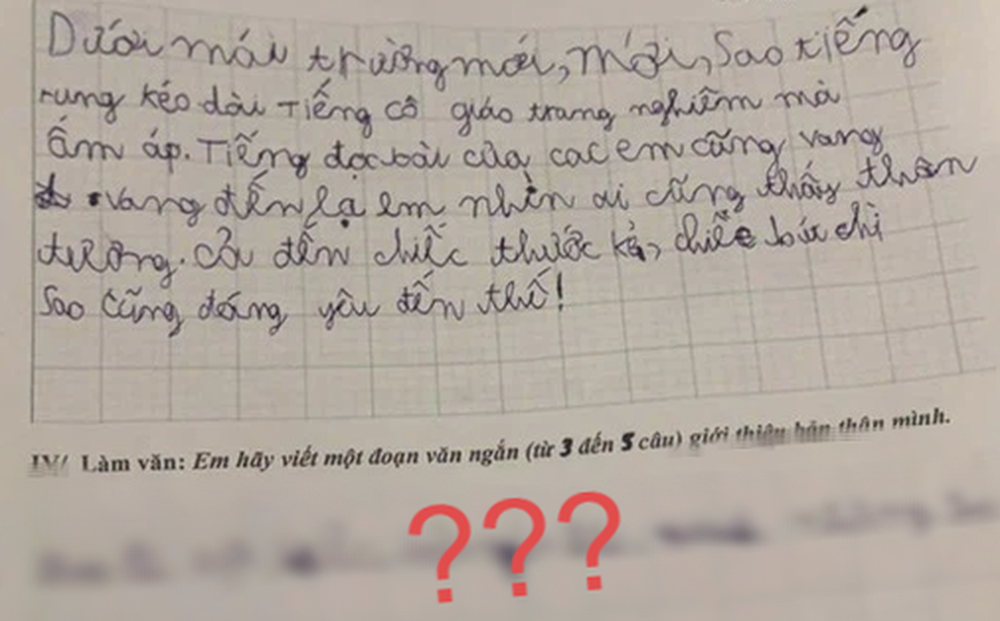 Dưới mái trường mới, Mới, Sao tiếng
rung kéo dài Tiếng cô giáo trang nghiêm mà
Ấm áp. Tiếng đọc bài của các em cũng vang
vang đến lạ em nhìn ai cũng thấy thân
thương. Cả đến chiếc thước kẻ, chiếc bút chì
Sao cũng đáng yêu đến thế!
IV/ Làm văn: Em hãy viết một đoạn văn ngắn (từ 3 đến 5 câu) giới thiệu bản thân mình.
???